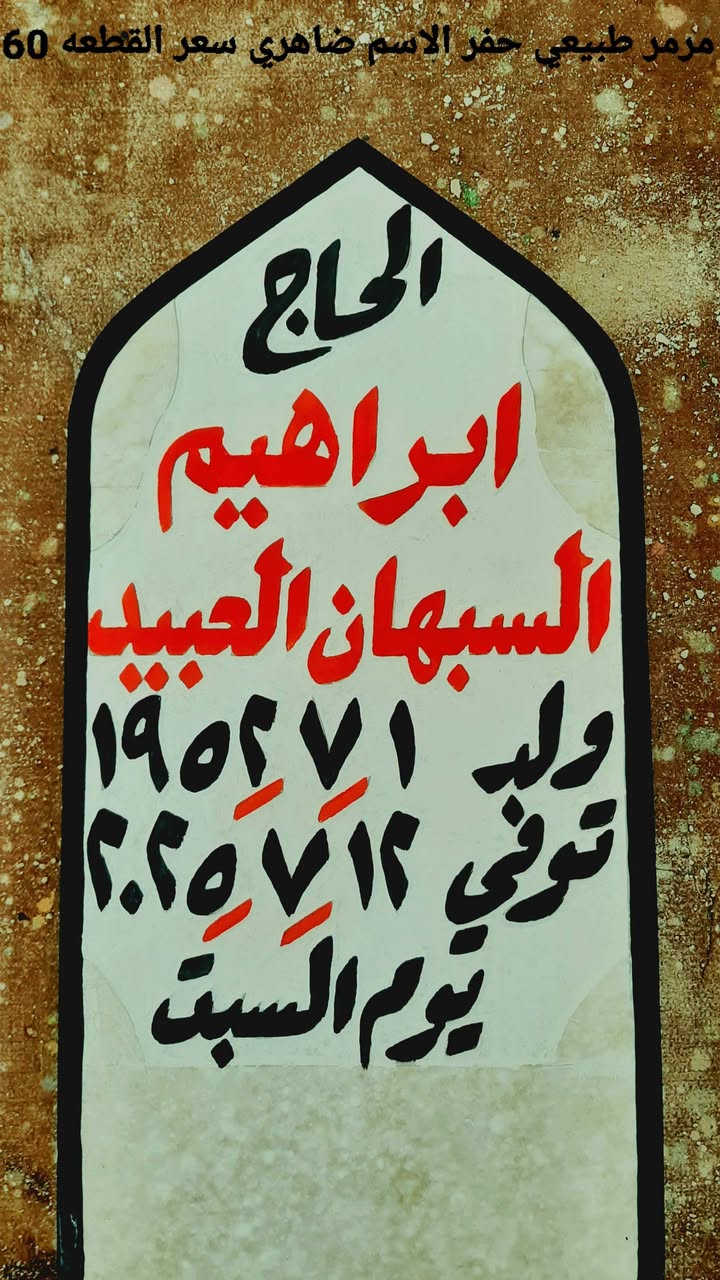 مرمر طبيعي حفر الاسم ضاهري سعر القطعه 60
الحاج
ابراهيم
السبهان العبيد
ولد ١/٧/١٩٥٢
توفي ١٢/٧/٢٠٢٥
يوم السبت